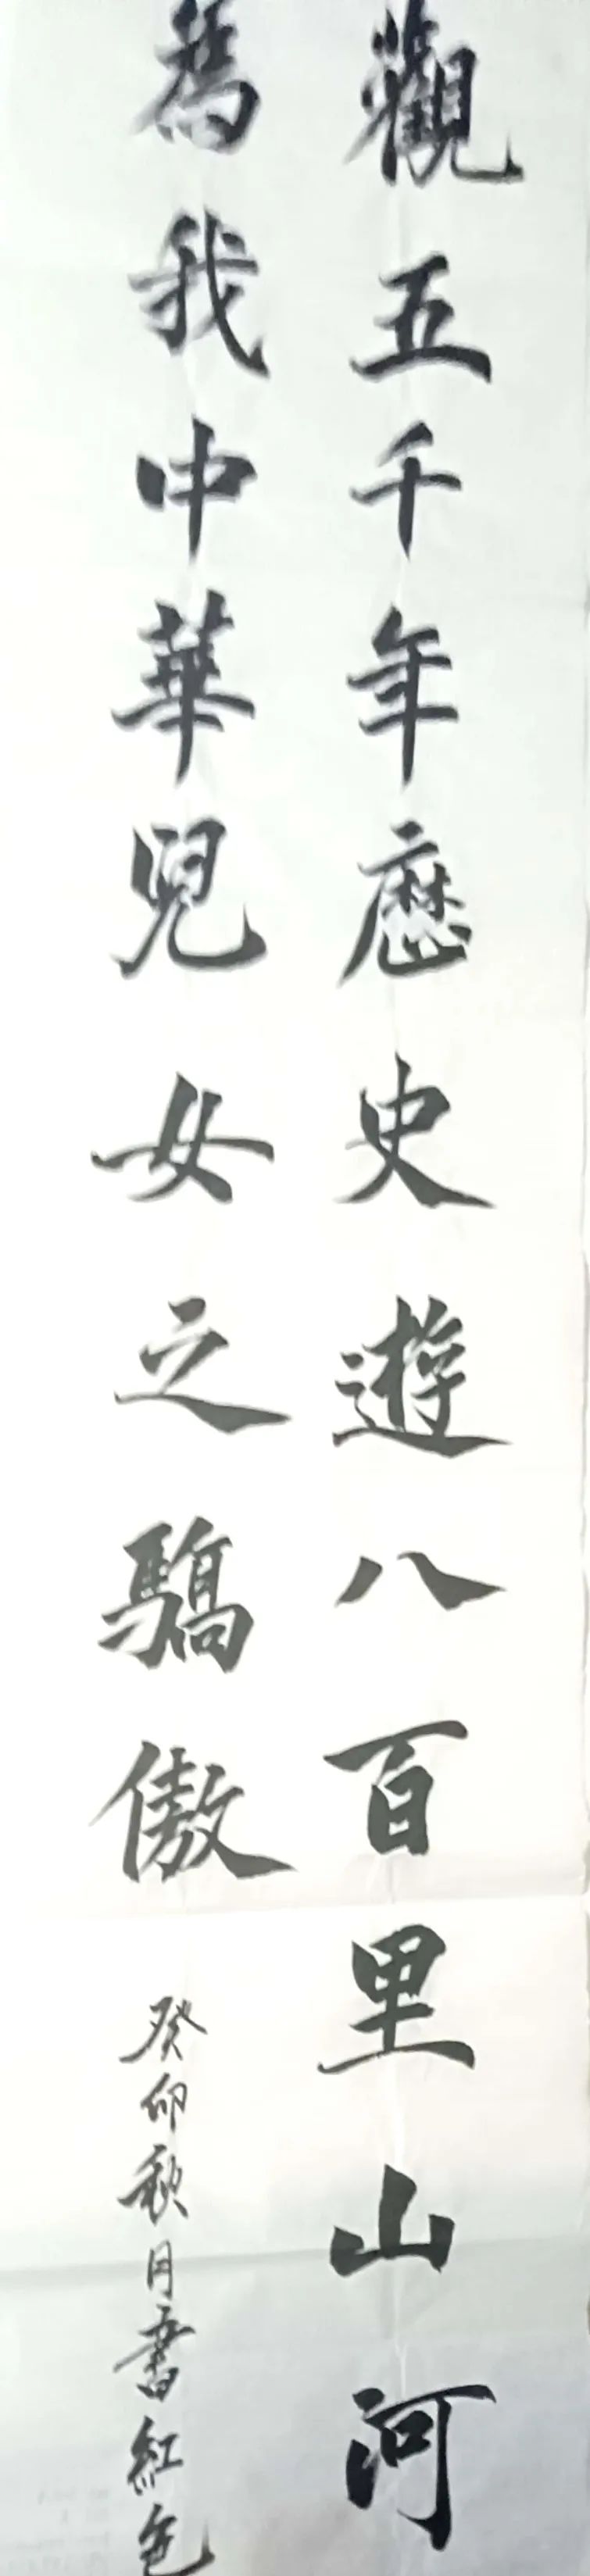 觀五千年歷史遊八百里山河
為我中華兒女之驕傲
癸卯秋月書紅色